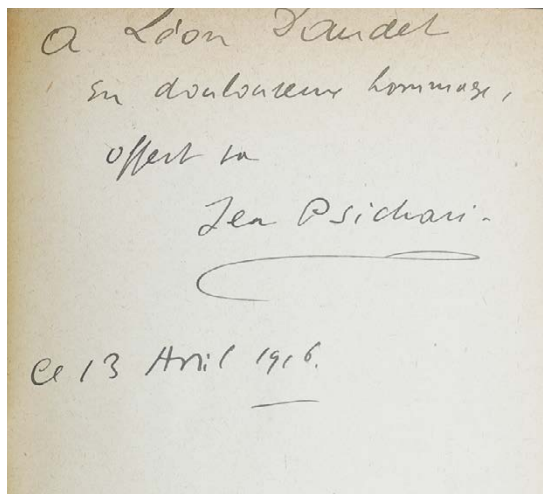 A Léon Daudet
En douloureux hommage,
offert
Jean Psichari.
Ce 13 Avril 1916.